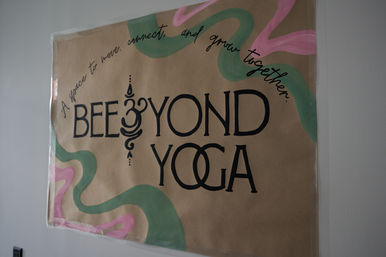 A space to move, connect, and grow together.
BEEYOND
YOGA